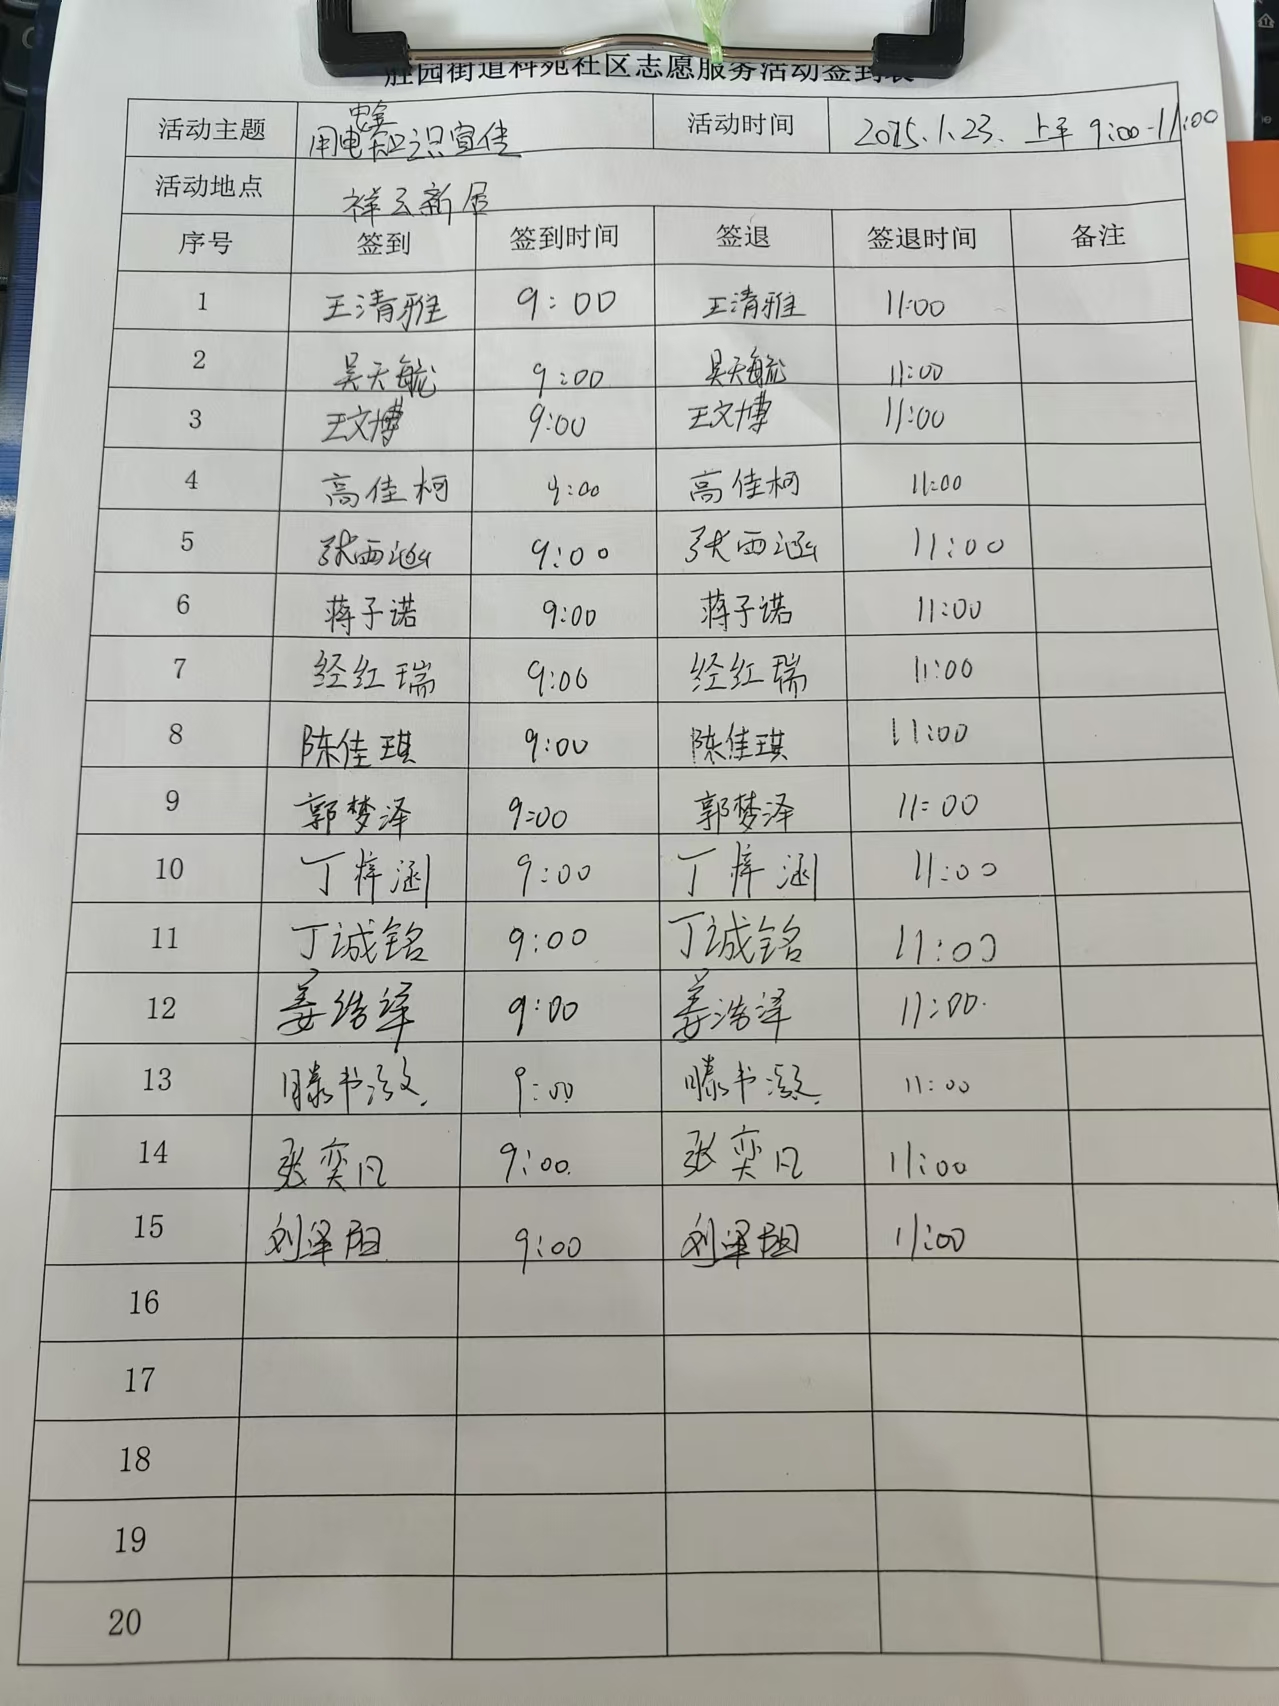 胜园街道科苑社区志愿服务活动签到表
活动主题 用电安全知识宣传 活动时间 2025.1.23. 上午 9:00-11:00
活动地点 祥云新居
序号 签到 签到时间 签退 签退时间 备注
1 王清雅 9:00 王清雅 11:00
2 吴天毓 9:00 吴天毓 11:00
3 王文博 9:00 王文博 11:00
4 高佳柯 9:00 高佳柯 11:00
5 张西涵 9:00 张西涵 11:00
6 蒋子诺 9:00 蒋子诺 11:00
7 经红瑞 9:00 经红瑞 11:00
8 陈佳琪 9:00 陈佳琪 11:00
9 郭梦泽 9:00 郭梦泽 11:00
10 丁梓涵 9:00 丁梓涵 11:00
11 丁诚铭 9:00 丁诚铭 11:00
12 姜浩泽 9:00 姜浩泽 11:00
13 滕书 9:00 滕书 11:00
14 张奕凡 9:00 张奕凡 11:00
15 刘泽 9:00 刘泽 11:00
16
17
18
19
20